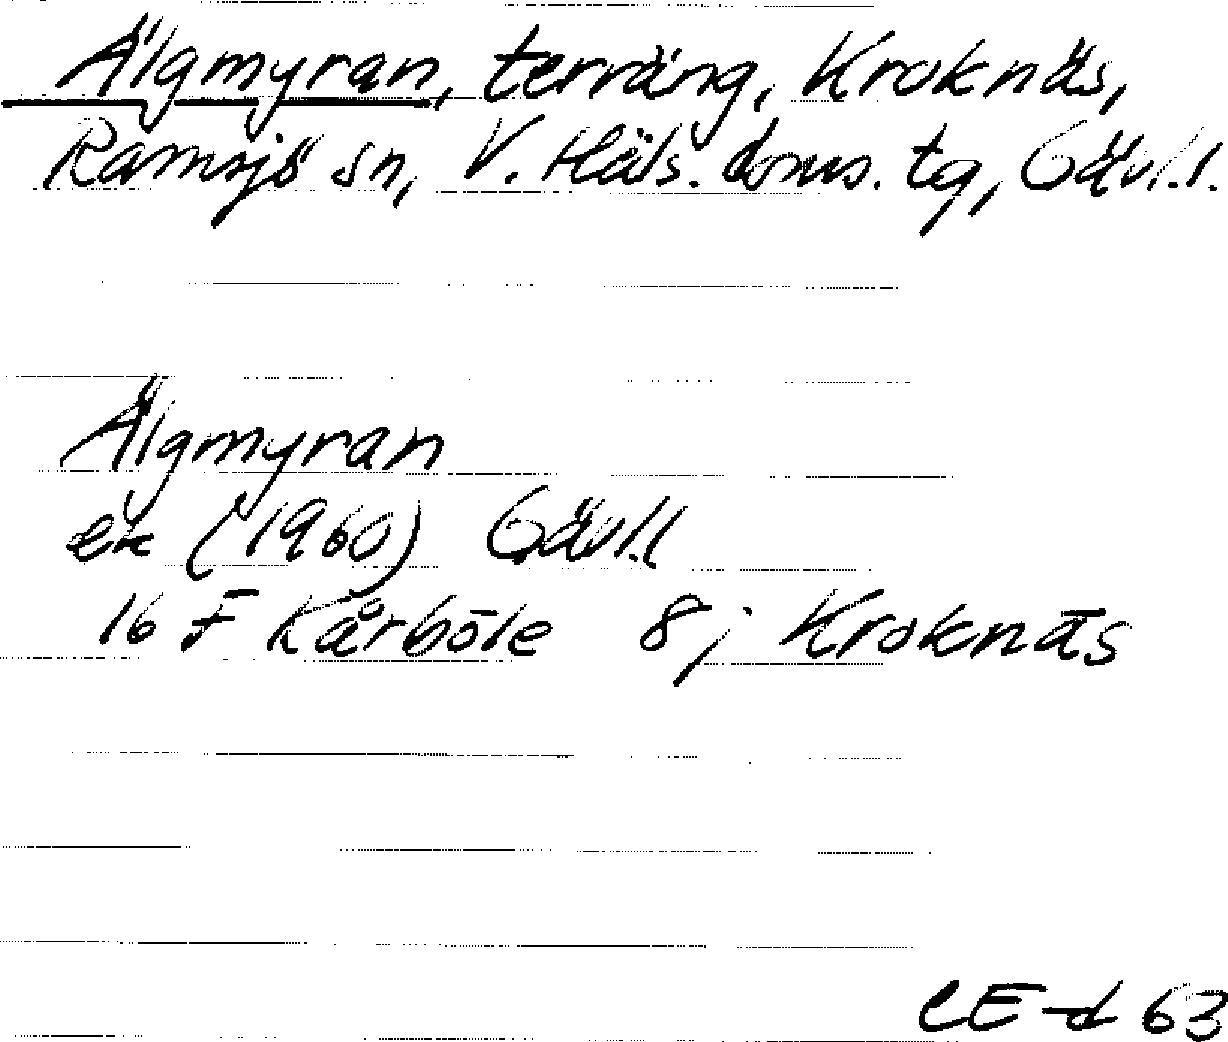 Älgmyran, terräng, Kroknäs,
Ramsjö sn, V. Häls. doms. tg, Gävl.l.
Älgmyran
ek (1960) Gävl.l
16 F Kårböle 8j Kroknäs
CE-d 63